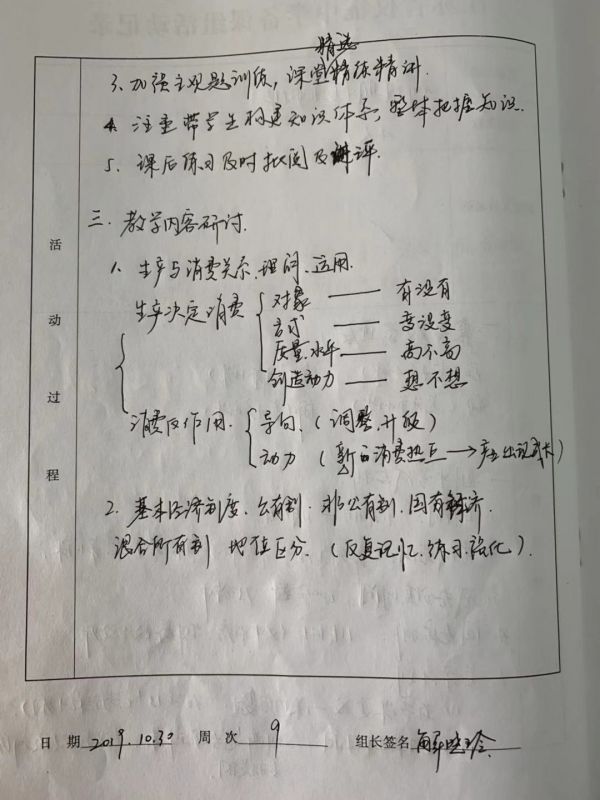 精选
3、加强主观题训练，课堂精练精讲.
4. 注重带学生构建知识体系，整体把握知识.
5. 课后练习及时批阅及讲评.
三. 教学内容研讨.
1. 生产与消费关系.理解、运用.
生产决定消费
对象 —— 有没有
方式 —— 变没变
质量.水平 —— 高不高
创造动力 —— 想不想
消费反作用.
导向.（调整.升级）
动力（新的消费热点→产业出现成长）
2. 基本经济制度. 公有制. 非公有制. 国有经济.
混合所有制 地位区分.（反复记忆.练习.强化）.
活动过程
日 期 2019.10.30 周 次 9 组长签名